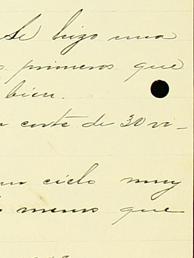 Se hizo una
primeros que
bien.
corte de 30 vi-
un cielo muy
menos que